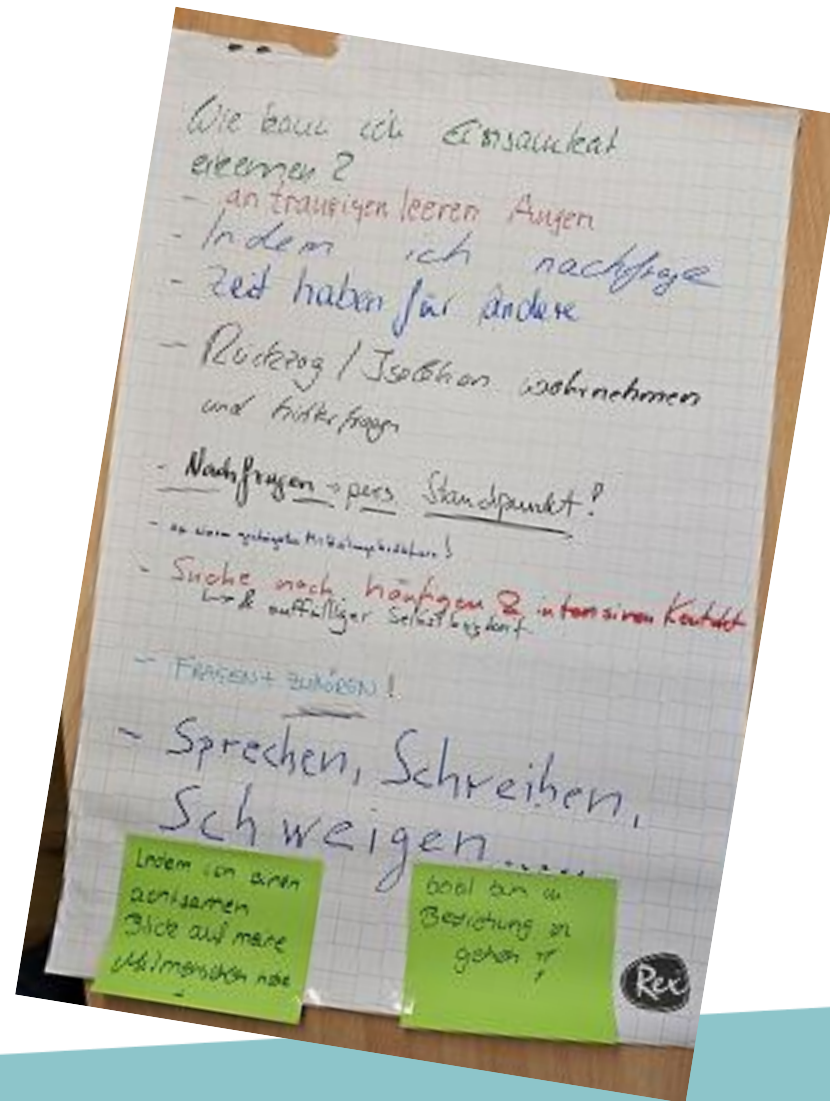 Wie kann ich Einsamkeit
erkennen?
- an traurigen leeren Augen
- Indem ich nachfrage
- Zeit haben für andere
- Rückzug / Isolation wahrnehmen
und hinterfragen
- Nachfragen → pers. Standpunkt!
- an einem gesteigerten Mitteilungsbedürfnis!
- Suche nach häufigen & intensiven Kontakt
auffälliger
- FRAGEN + ZUHÖREN!
- Sprechen, Schreiben,
Schweigen.....
Indem ich einen
achtsamen
Blick auf meine
Mitmenschen habe
bin in
Beziehung zu
gehen
Rex